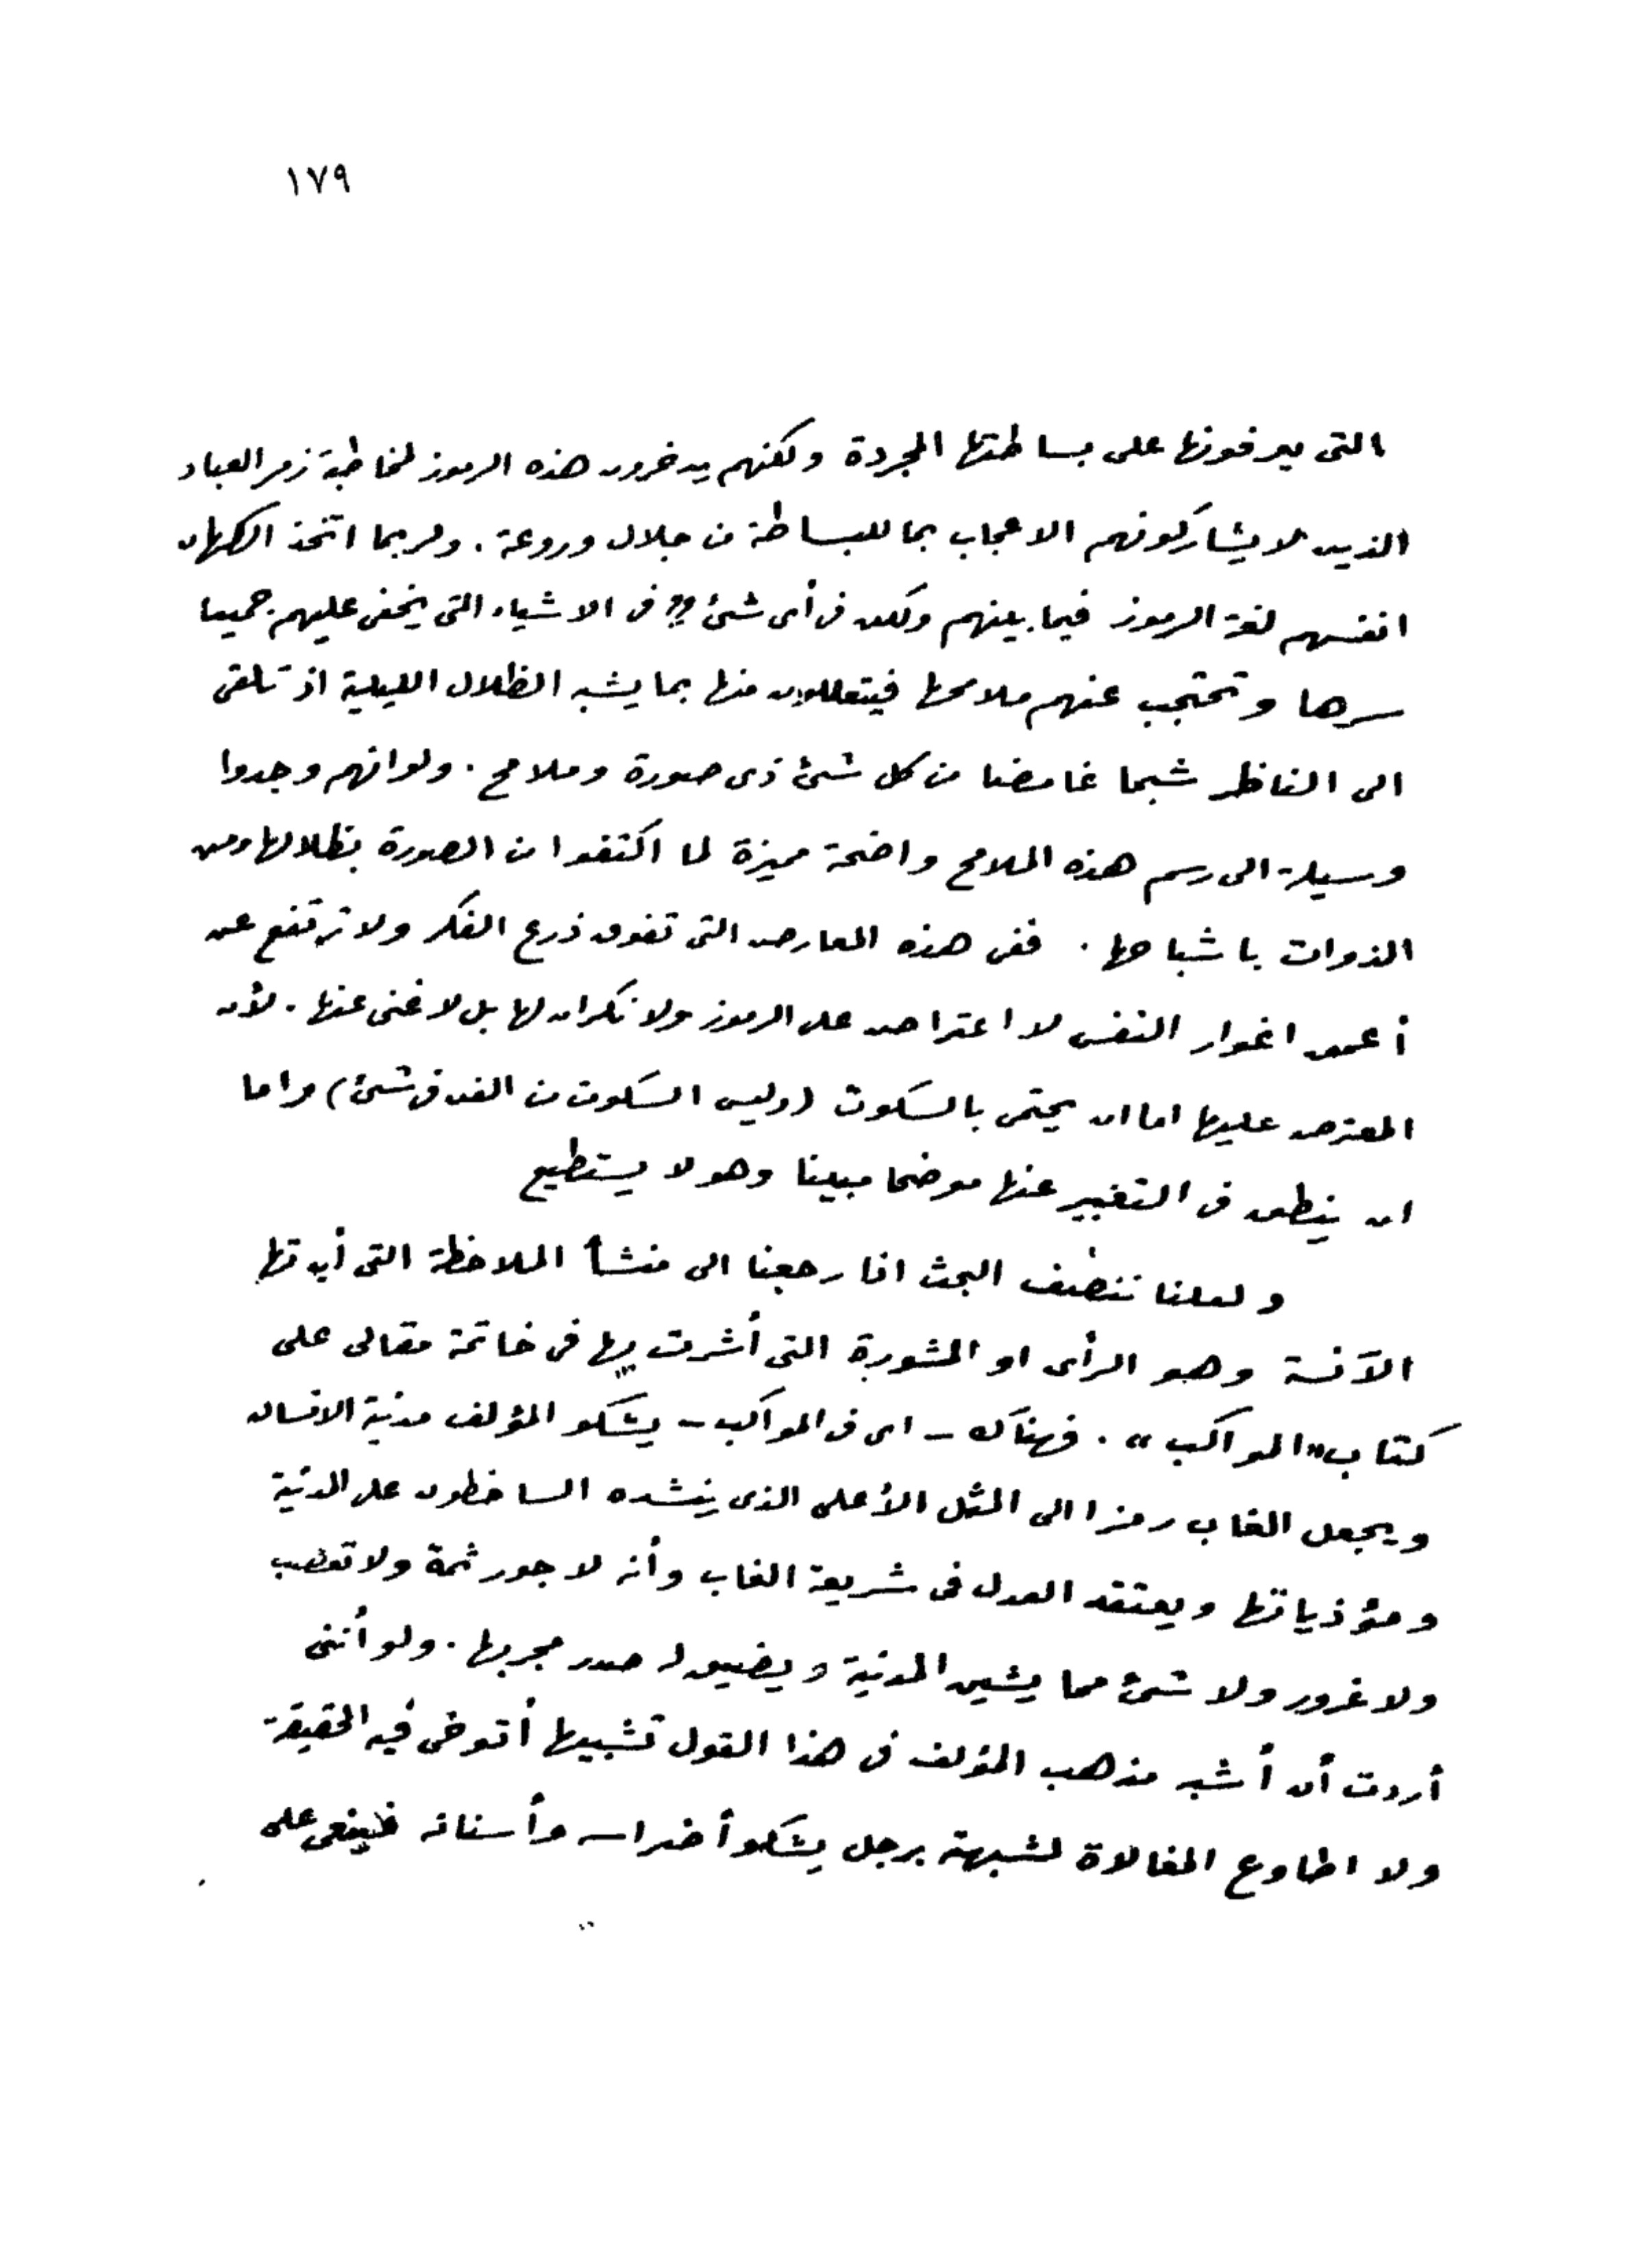 ١٧٩
التى يعرفونها على بساطتها المجردة ولكنهم يدخرون هذه الرموز لمخاطبة زمر العباد
الذين لا يشاركونهم الاعجاب بما للبساطة من جلال وروعة. ولربما اتخذ الكهان
انفسهم لغة الرموز فيما بينهم ولكن فى أى شئ ؟؟ فى الاشياء التى يخفى عليهم جميعا
سرها وتحتجب عنهم ملامحها فيتعللون منها بما يشبه الظلال الليلية اذ تلقى
الى الناظر شبحا غامضا من كل شئ ذى صورة وملامح. ولو انهم وجدوا
وسيلة الى رسم هذه الملامح واضحة مميزة لما اكتفوا من الصورة بظلالها ومن
الذوات باشباحها. ففى هذه المعارض التى تفوق ذرع الفكر ولا ترتفع عن
أعمق اغوار النفس لا اعتراض على الرموز ولا نكران لها بل لا غنى عنها. لأن
المعترض عليها اما ان يحتمى بالسكوت (وليس السكوت من الفن فى شئ) واما
ان ينطق فى التعبير عنها موضحا مبينا وهو لا يستطيع
ولعلنا ننصف البحث اذا رجعنا الى منشأ الملاحظة التى أبدتها
الآنسة وهو الرأى او المشورة التى أشرت بها فى خاتمة مقالى على
كتاب "المواكب". فهناك - اى فى المواكب - يشكو المؤلف مدنية الانسان
ويجعل الغاب رمزا الى المثل الأعلى الذى ينشده الساخطون على المدنية
ومؤذياتها ويعتقد العدل فى شريعة الغاب وأنه لا جور ثمة ولا تعصب
ولا غرور ولا شئ مما يشين المدنية ويضيق له صدر مجربها. ولو أننى
أردت أن أشبه مذهب المؤلف فى هذا القول تشبيها أتوخى فيه الحقيقة
ولا اطاوع المغالاة لشبهته برجل يشكو أضراسه وأسنانه فينعى على